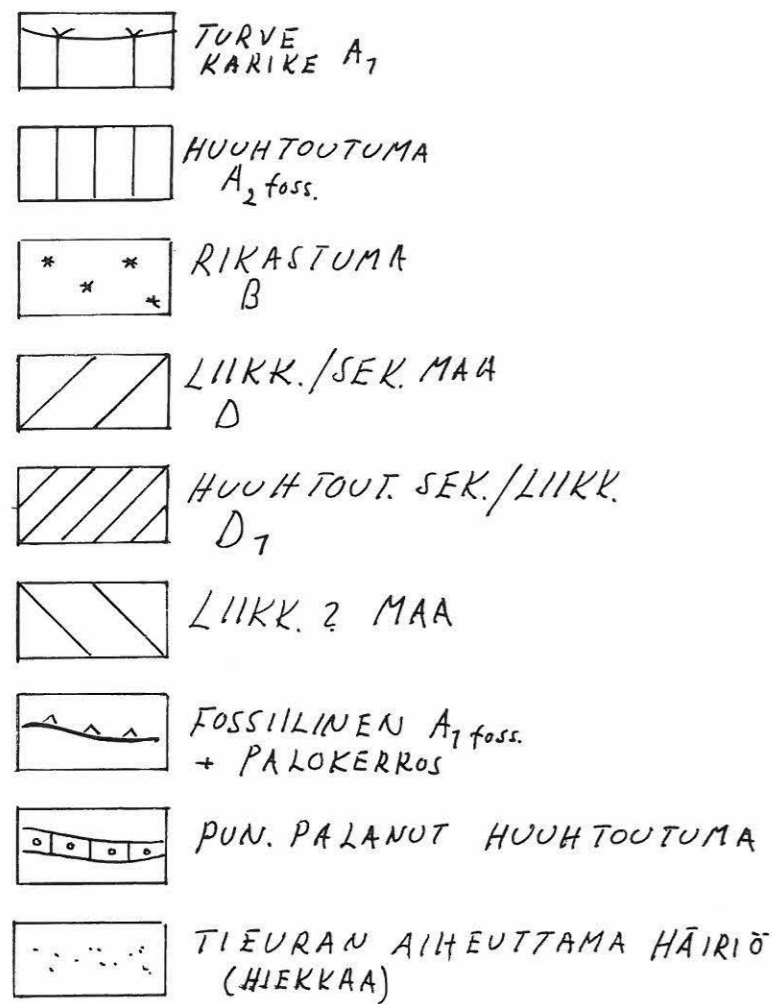 TURVE
KARIKE A₁
HUUHTOUTUMA
A₂ foss.
RIKASTUMA
B
LIIKK./SEK. MAA
D
HUUHTOUT. SEK./LIIKK.
D₁
LIIKK. ? MAA
FOSSIILINEN A₁ foss.
+ PALOKERROS
PUN. PALANUT HUUHTOUTUMA
TIEURAN AIHEUTTAMA HÄIRIÖ
(HIEKKAA)